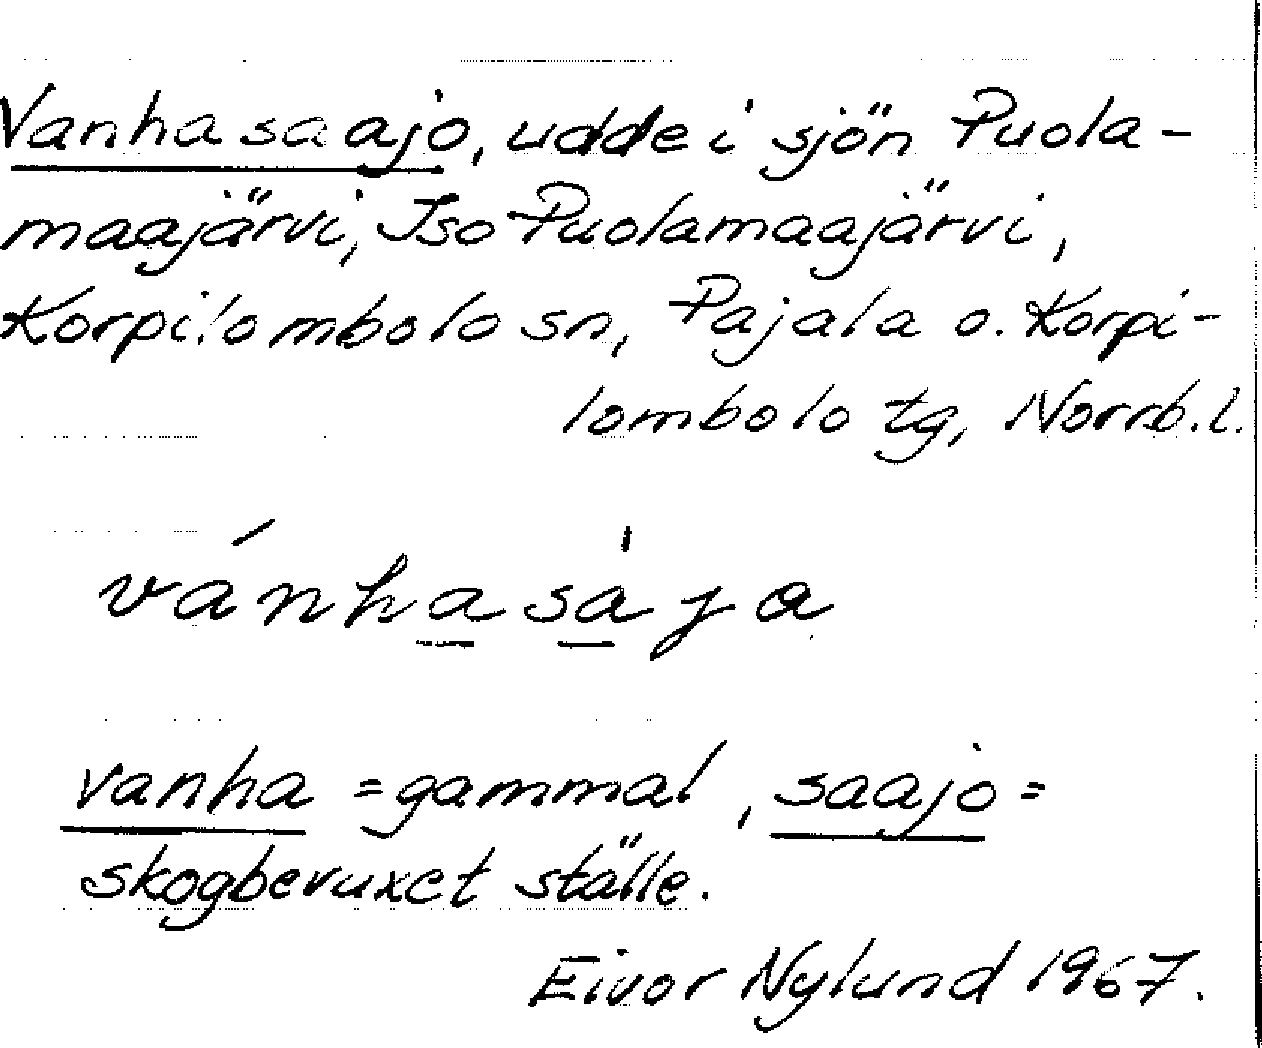 Vanhasaajo, udde i sjön Puola-
maajärvi, Iso Puolamaajärvi,
Korpilombolo sn, Pajala o. Korpi-
lombolo tg, Norrb.l.
vánhasàja
vanha = gammal, saajo =
skogbevuxet ställe.
Eivor Nylund 1967.